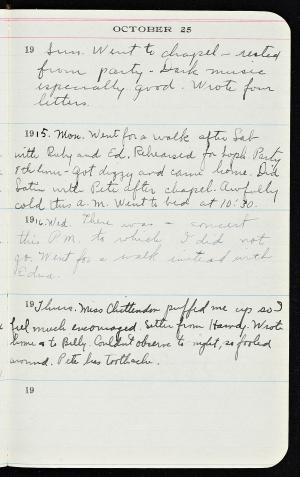 OCTOBER 25
19 Sun. Went to chapel – rested
from party – Dark music
especially good. Wrote four
letters.
1915. Mon. Went for a walk after Lab
with Ruby and Ed. Rehearsed for Soph. Party
5th hour – Got dizzy and came home. Did
Latin with Pete after chapel. Awfully
cold this a.m. Went to bed at 10:30.
1916. Wed. There was a concert
this P.M. to which I did not
go. Went for a walk instead with
Edna.
19 Thurs. Miss Chittendon puffed me up so I
feel much encouraged. Letter from Harndy. Wrote
home & to Billy. Couldn't observe to night, so fooled
around. Pete has toothache.
19